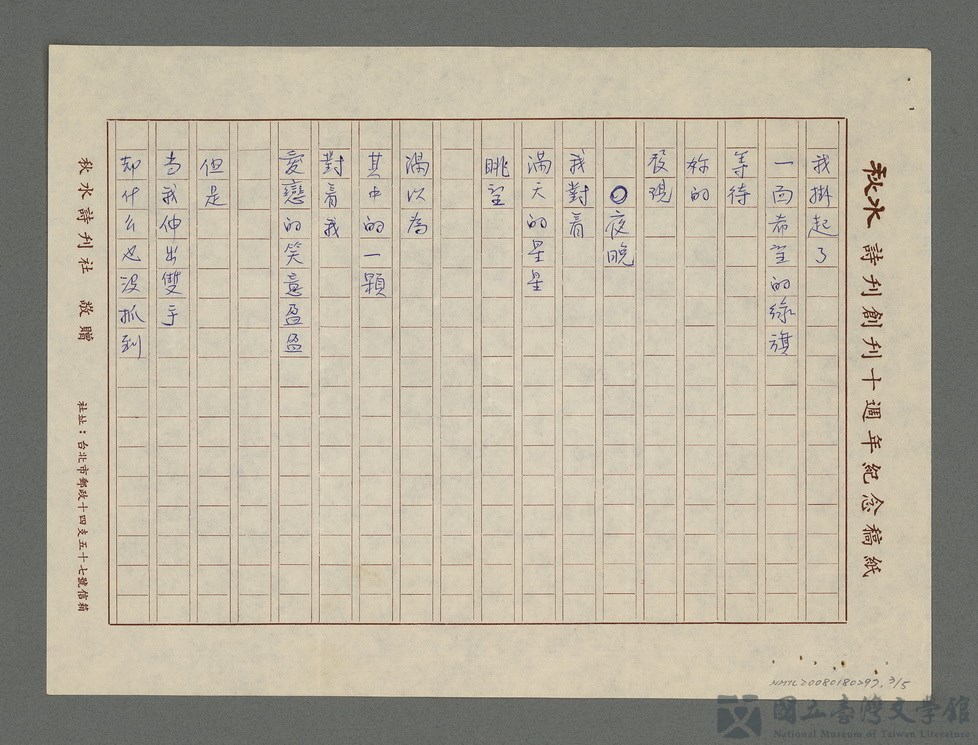 秋水 詩刊創刊十週年紀念稿紙
我掛起了
一面希望的綠旗
等待
妳的
發現
○夜晚
我對着
滿天的星星
眺望
滿以為
其中的一顆
對着我
愛戀的笑意盈盈
但是
当我伸出雙手
却什么也没抓到
秋水詩刊社 敬贈 社址：台北市郵政十四支五十七號信箱
NMTL20080180297, 3/5
國立臺灣文學館
National Museum of Taiwan Literature